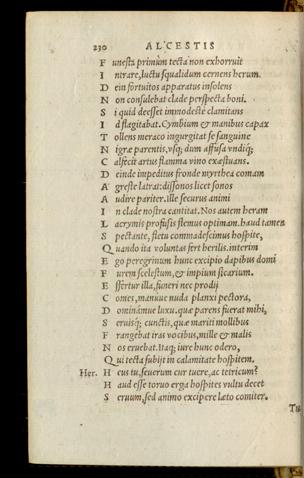 230 ALCESTIS
F unesta primùm tecta non exhorruit
I ntrare, luctu squalidum cernens herum.
D ein fortuitos apparatus insolens
N on consulebat clade perspecta boni.
S i quid deesset immodestè clamitans
I d flagitabat. Cymbium & manibus capax
T ollens meraco ingurgitat se sanguine
N igræ parentis, usq; dum affusa undiq;
C alfecit artus flamma vino exæstuans.
D einde impeditus fronde myrthea comam
A greste latrat: dissonos licet sonos
A udire pariter. ille securus animi
I n clade nostra cantitat. Nos autem heram
L acrymis profusis flemus optimam. haud tamen
S pectante, fletu commadescimus hospite,
Q uando ita voluntas fert herilis. interim
E go peregrinum hunc excipio dapibus domi
F urem scelestum, & impium sicarium.
E ffertur illa, funeri nec prodij
C omes, manuue nuda planxi pectora,
D ominámue luxu. quæ parens fuerat mihi,
S eruisq; cunctis, quæ mariti mollibus
F rangebat iras vocibus, mille & malis
N os eruebat. Itaq; iure hunc odero,
Q ui tecta subijt in calamitate hospitem.
Her. H eus tu, seuerum cur tuere, ac tetricum?
H aud esse toruo erga hospites vultu decet
S eruum, sed animo excipere lato comiter.
Tu